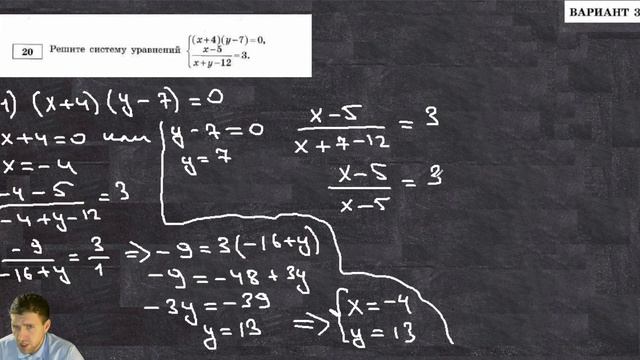 ВАРИАНТ 3
20 Решите систему уравнений { (x+4)(y−7)=0,
(x−5)/(x+y−12)=3.
1) (x+4)(y−7)=0
x+4=0 или y−7=0
x=−4 y=7
(−4−5)/(−4+y−12)=3
(−9)/(−16+y)=3/1 => −9=3(−16+y)
−9=−48+3y
−3y=−39
y=13 => { x=−4
y=13
(x−5)/(x+7−12)=3
(x−5)/(x−5)=3